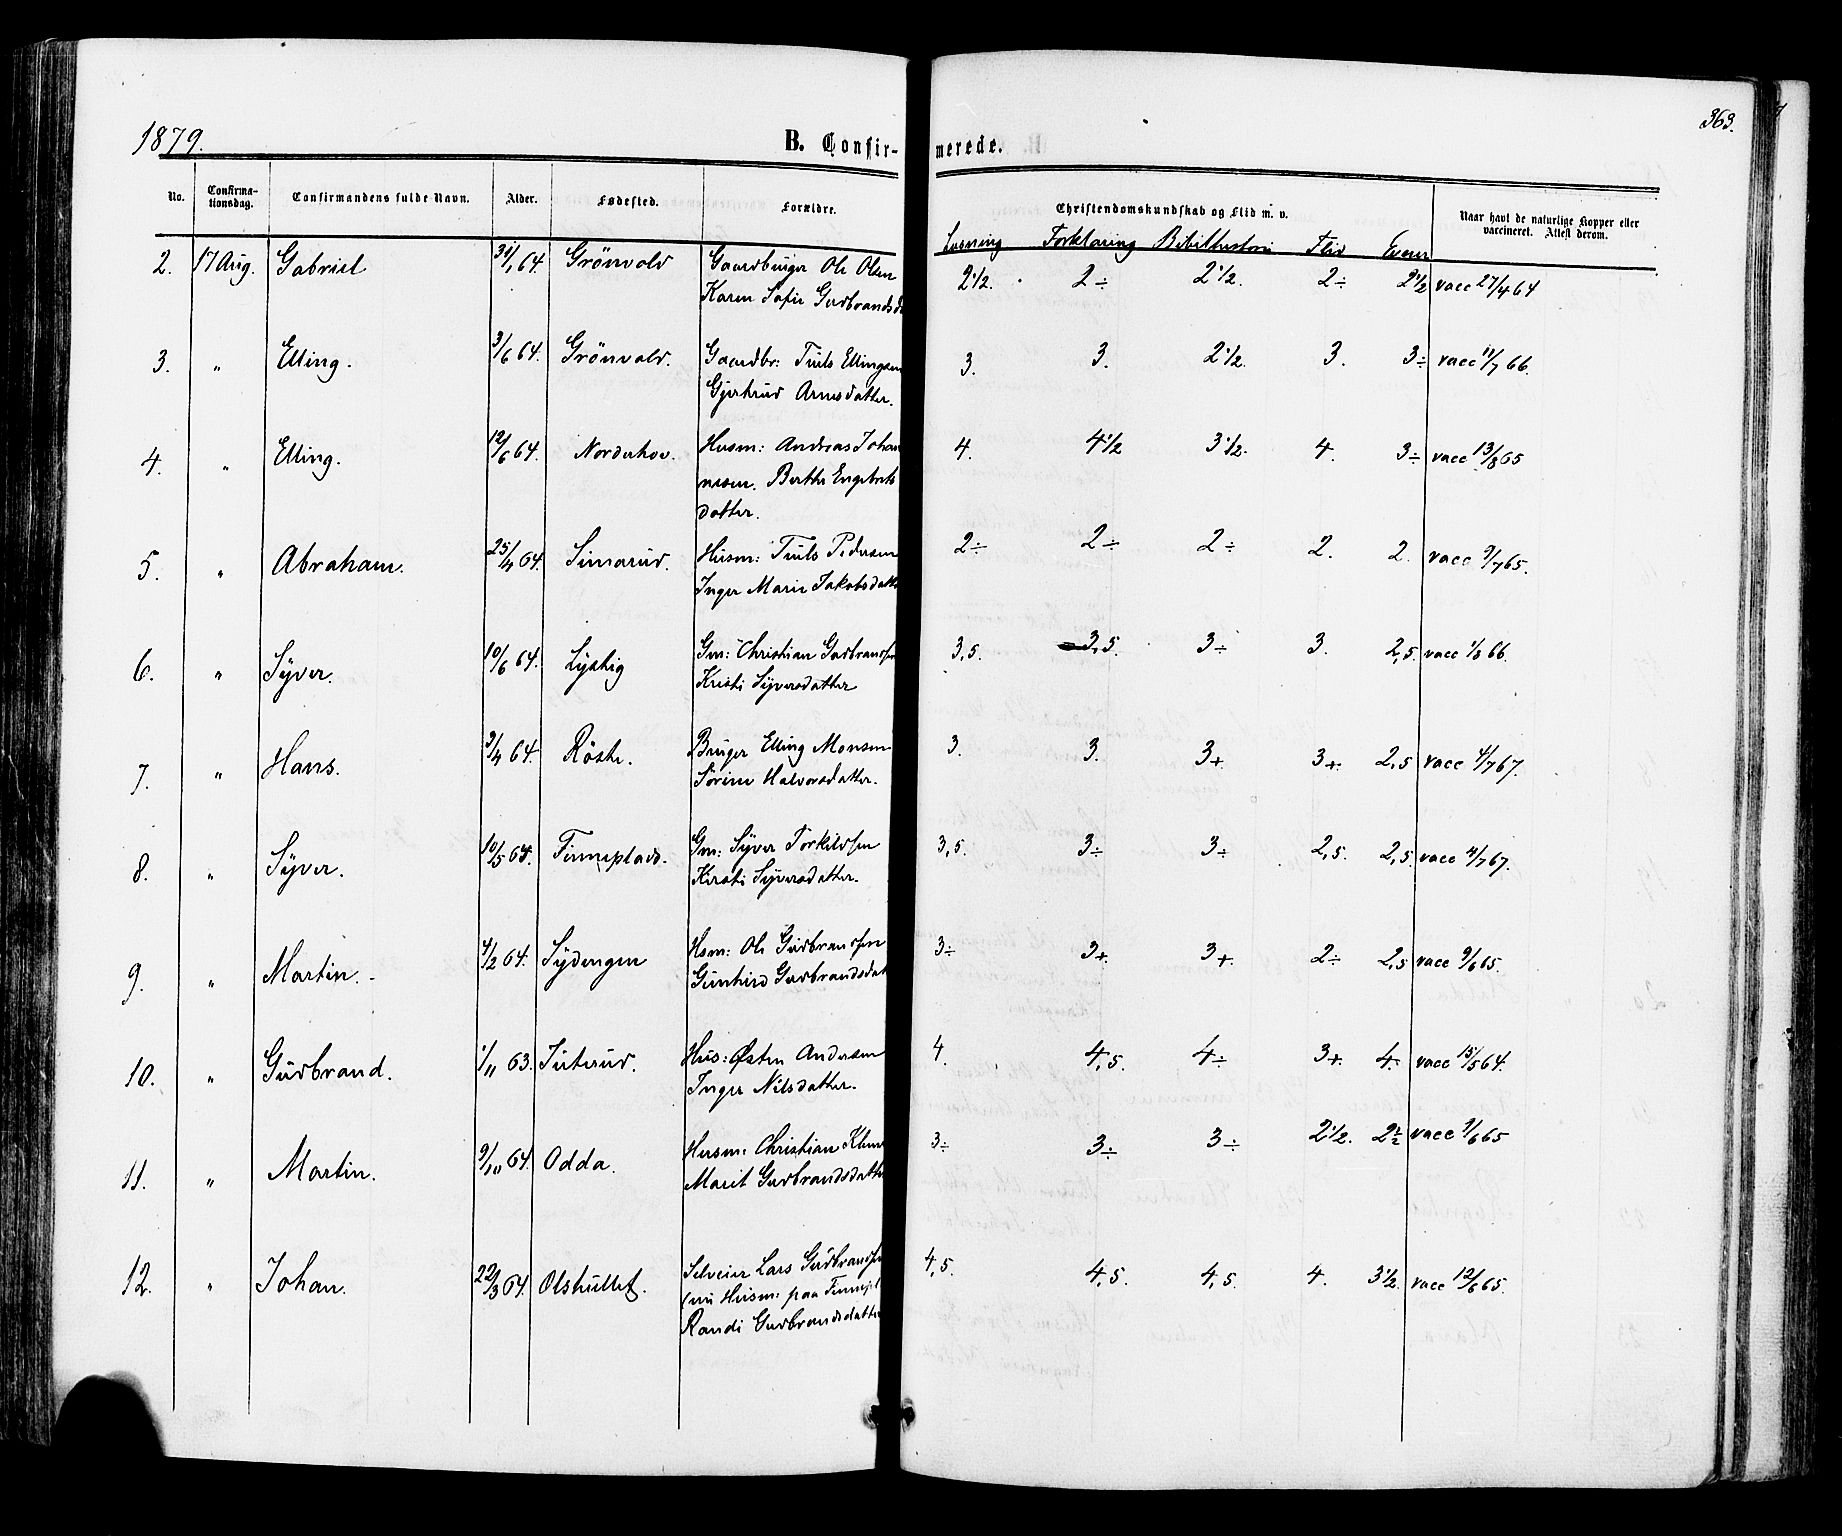 1879.
B. Confir-
merede.
363.
No. Confirma-tionsdag. Confirmandens fulde Navn. Alder. Fødested. Forældre. Christendomskundskab og Flid m. v. Naar havt de naturlige Kopper eller vaccineret. Attest derom.
Læsning Forklaring Bibelhistori Flid Evner
2. 17 Aug. Gabriel 31/1 64. Grönvold Gaardbruger Ole Olsen 2 1/2. 2÷ 2 1/2. 2÷ 2 1/2 vacc 27/4 64
Karen Sofie Gudbrandsd
3. " Elling. 3/6 64. Grönvold. Gaardbr: Truls Ellingsen 3. 3. 2 1/2. 3. 3÷ vacc 11/7 66.
Gjertrud Arnesdatter.
4. " Elling. 12/6 64. Norderhov. Husm: Andreas Johan 4. 4 1/2 3 1/2. 4. 3÷ vacc 13/8 65
nesen. Berthe Engebrets
datter.
5. " Abraham. 25/4 64. Simarud. Husm: Truls Pedersen 2÷ 2÷ 2÷ 2. 2. vacc 9/7 65.
Inger Marie Jakobsdatt
6. " Syver. 10/6 64. Lystig Gm: Christian Gudbrandsen 3,5. 3,5. 3÷ 3. 2,5. vacc 1/8 66.
Kristi Syversdatter
7. " Hans. 3/4 64. Röste. Bruger Elling Monsen 3. 3. 3+ 3+. 2,5 vacc 4/7 67.
Sörine Halvorsdatter.
8. " Syver. 10/5 64. Finneplads. Gm: Syver Torkildsen 3,5. 3÷ 3÷ 2,5. 2,5. vacc 4/7 67.
Kersti Syversdatter.
9. " Martin. 4/2 64. Sydengen Hsm: Ole Gudbrandsen 3÷ 3+. 3+. 2÷ 2,5 vacc 9/6 65.
Gunhild Gudbrandsdat
10. " Gudbrand. 1/11 63. Juterud. Hus: Østen Andersen 4. 4,5. 4÷ 3+. 4. vacc 15/5 64.
Inger Nilsdatter.
11. " Martin. 9/10 64. Odda. Husm: Christian 3÷ 3÷ 3÷ 2 1/2. 2 1/2 vacc 9/6 65
Marit Gudbrandsdatter
12. " Johan. 22/3 64. Olshullet. Selveier Lars Gudbrandsen 4,5. 4,5. 4,5. 4. 3 1/2. vacc 12/6 65.
(nu Husm: paa Finnepl
Randi Gudbrandsdatter